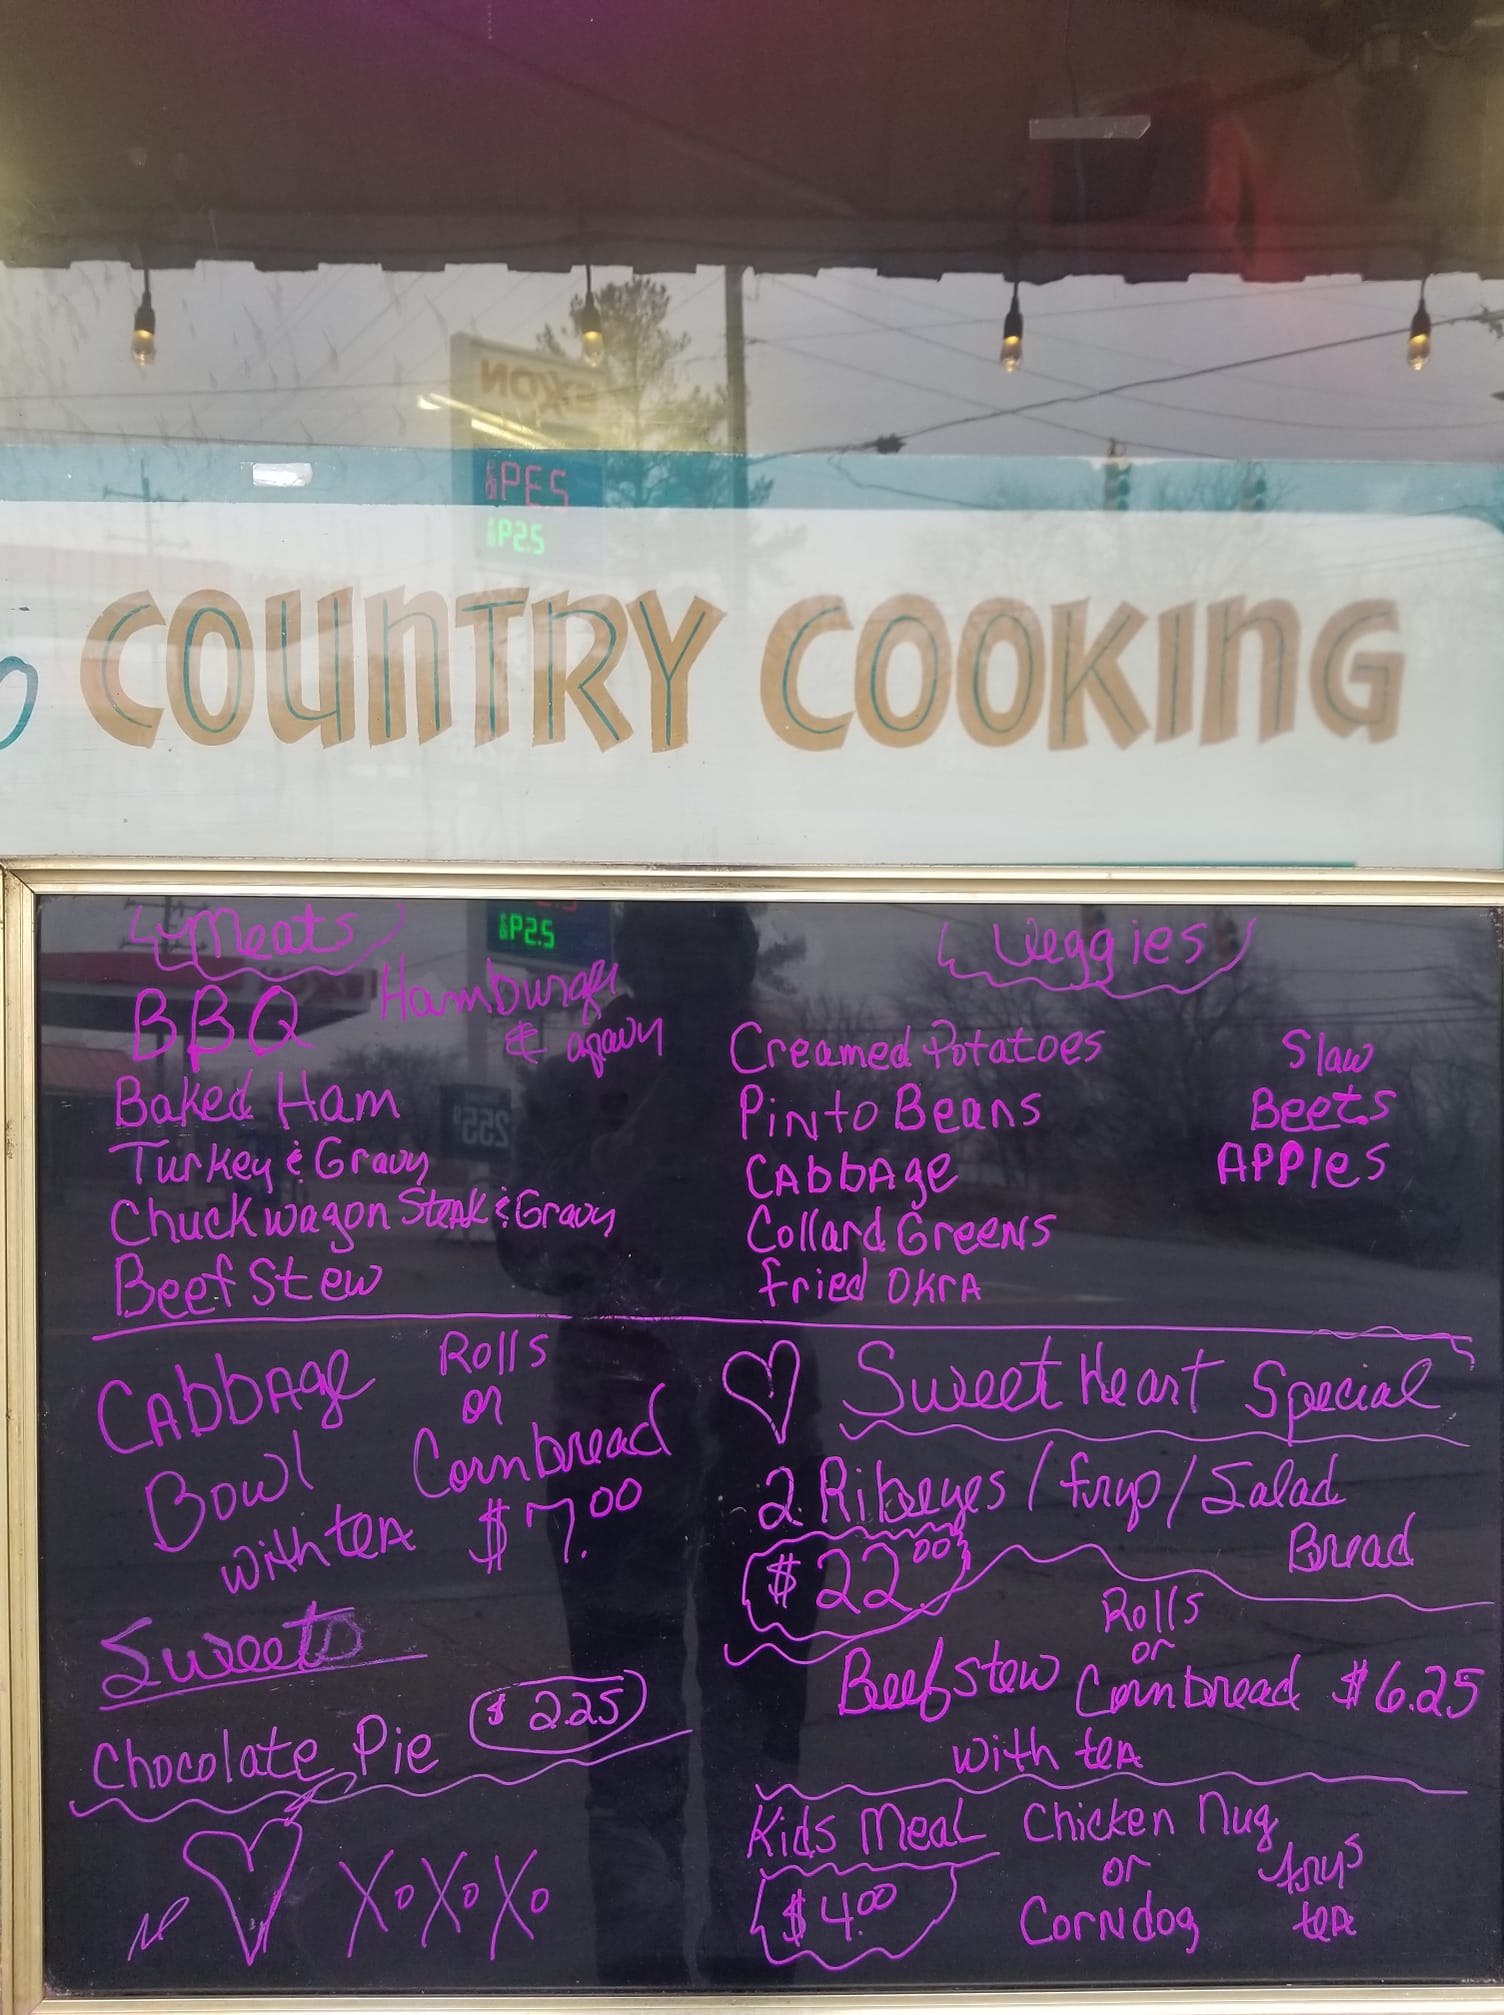 EXXON
COUNTRY COOKING
Meats
BBQ
Hamburger
& gravy
Baked Ham
Turkey & Gravy
Chuckwagon Steak & Gravy
Beef Stew
Veggies
Creamed Potatoes
Pinto Beans
CAbbAge
Collard Greens
fried Okra
Slaw
Beets
Apples
CAbbAge
Bowl
with teA
Rolls
or
Cornbread
$7.00
Sweets
Chocolate Pie $2.25
XoXoXo
Sweet Heart Special
2 Ribeyes / frys / Salad
Bread
$22.00
Beef stew Rolls
or
Cornbread $6.25
with teA
Kids Meal
$4.00
Chicken Nug
or
Corndog
frys
teA